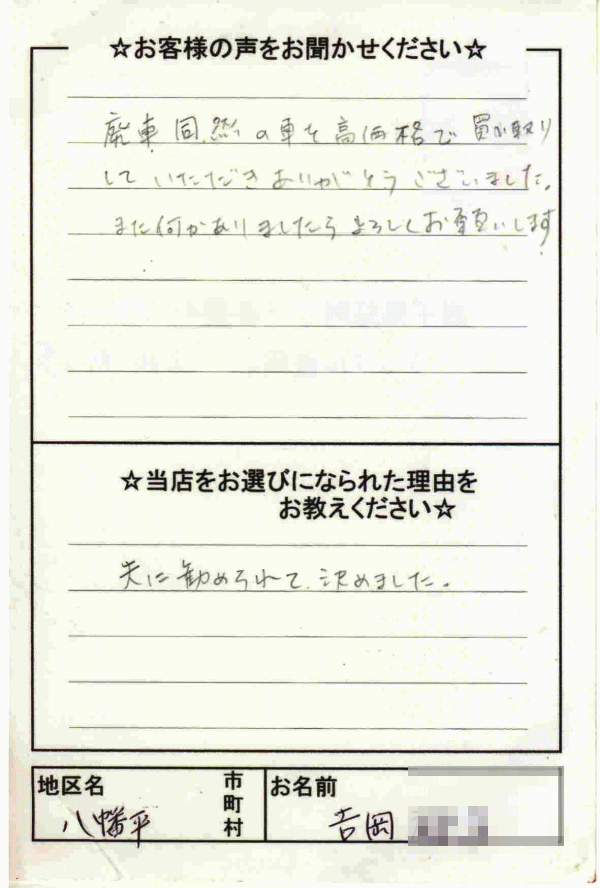 ☆お客様の声をお聞かせください☆
廃車同然の車を高価格で買い取り
していただきありがとうございました。
また何かありましたらよろしくお願いします
☆当店をお選びになられた理由を
お教えください☆
夫に勧められて決めました。
地区名
八幡平
市
町
村
お名前
吉岡